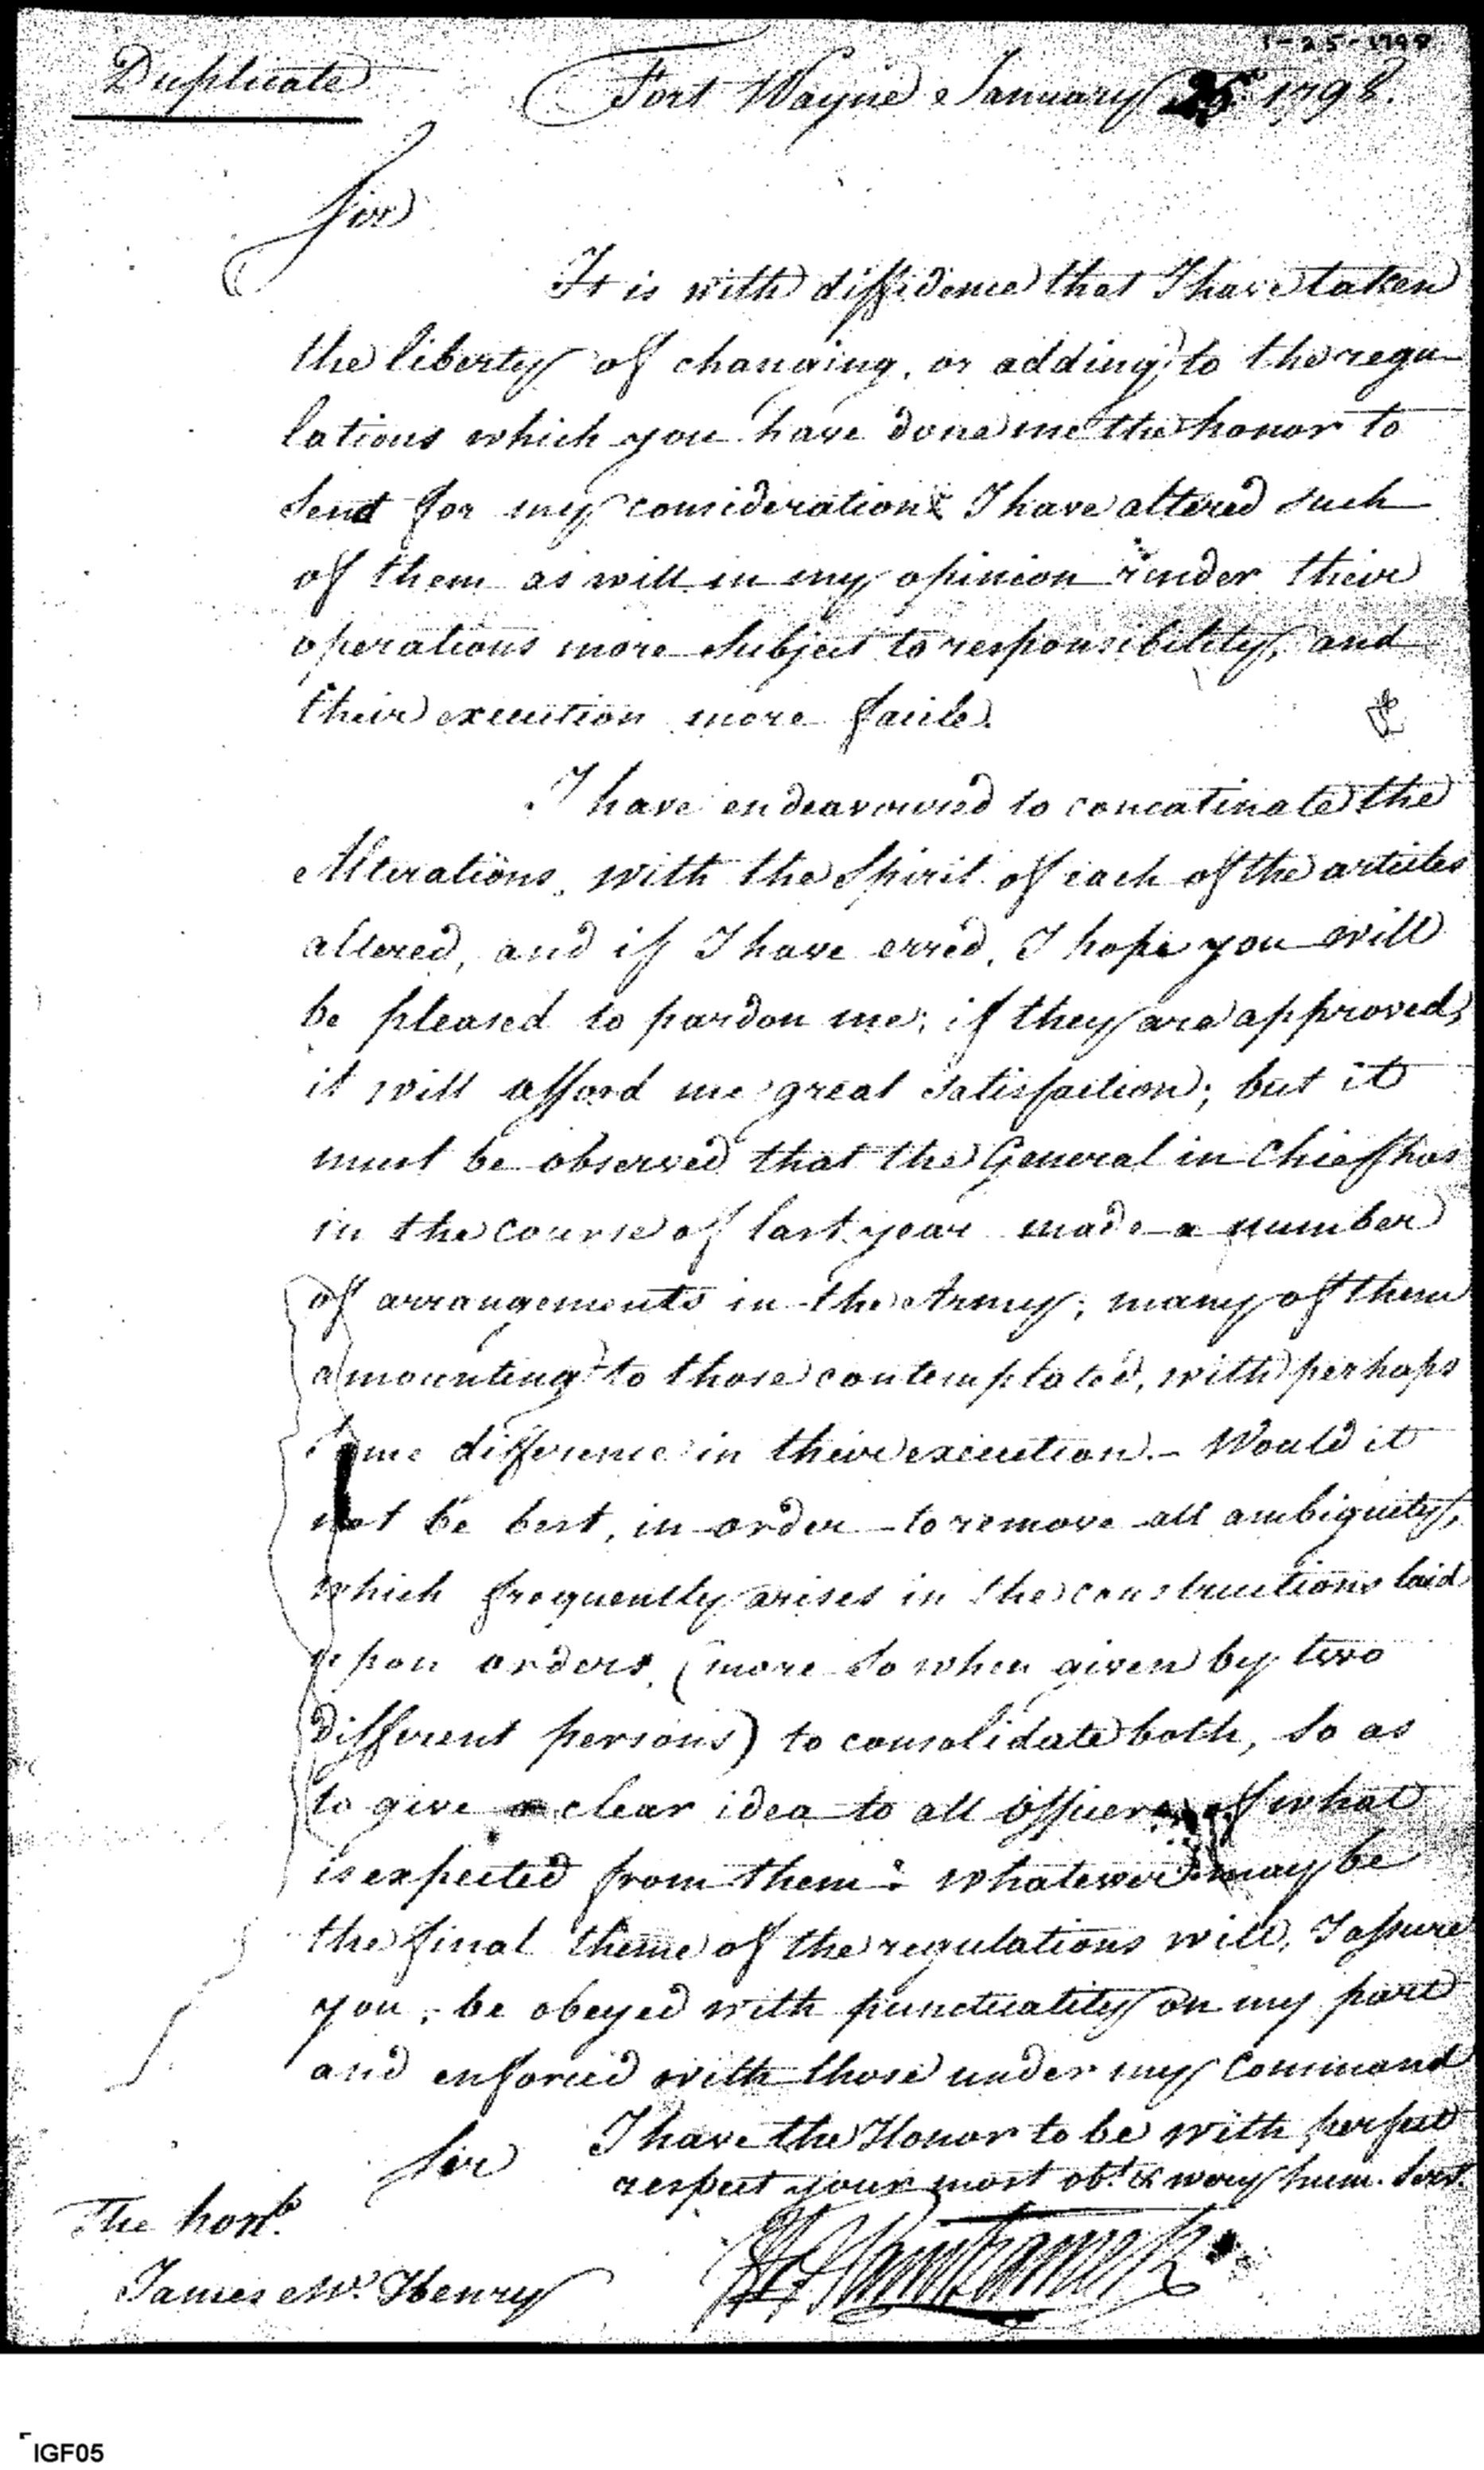 1-25-1798
Duplicate
Fort Wayne January 25 1798.
Sir
It is with diffidence that I have taken
the liberty of changing, or adding to the regu-
lations which you have done me the honor to
send for my consideration: I have altered such
of them as will in my opinion render their
operations more subject to responsibility, and
their execution more facile.
I have endeavoured to concatinate the
Alterations, with the Spirit of each of the articles
altered, and if I have erred, I hope you will
be pleased to pardon me; if they are approved,
it will afford me great satisfaction; but it
must be observed that the General in Chief has
in the course of last year made a number
of arrangements in the Army; many of them
amounting to those contemplated, with perhaps
some difference in their execution. - Would it
not be best, in order to remove all ambiguity,
which frequently arises in the constructions laid
upon orders, (more so when given by two
different persons) to consolidate both, so as
to give a clear idea to all officers of what
is expected from them: whatever may be
the final theme of the regulations will, I assure
you, be obeyed with punctuality on my part
and enforced with those under my Command
I have the Honor to be with perfect
Sir
respect your most obt. & very hum. Servt.
The honble.
James Mc. Henry
JF Hamtramck
IGF05